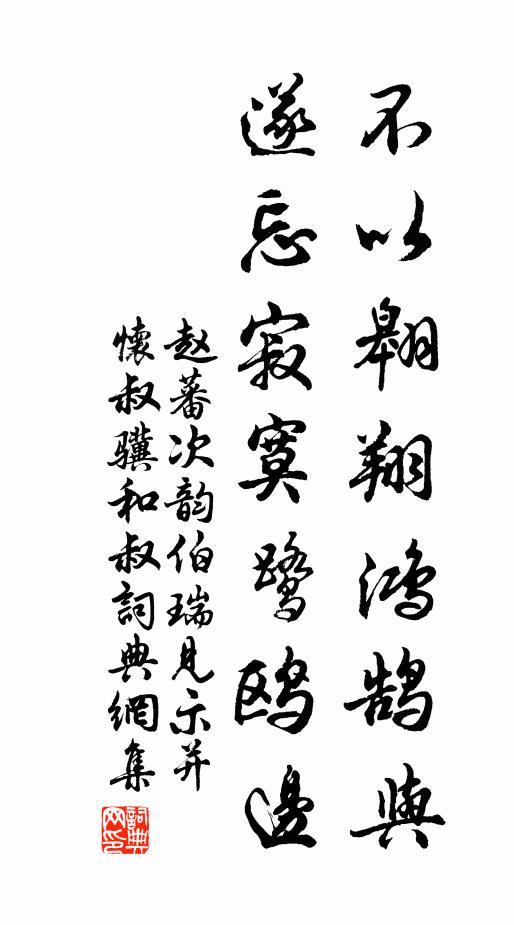 不以翱翔鸿鹄与
遂忘寂寞鹭鸥边
赵蕃次韵伯瑞见示并
怀叔骥和叔词典网集
词典
网印